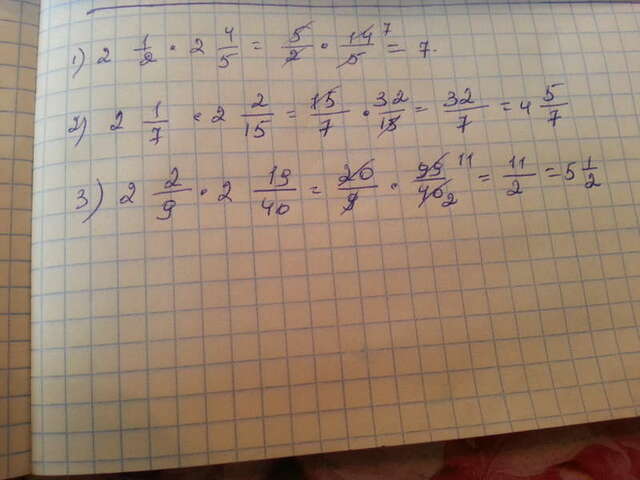 1) 2 1/2 · 2 4/5 = 5/2 · 14/5 7 = 7.
2) 2 1/7 · 2 2/15 = 15/7 · 32/15 = 32/7 = 4 5/7
3) 2 2/9 · 2 19/40 = 20/9 · 99/40 11 2 = 11/2 = 5 1/2